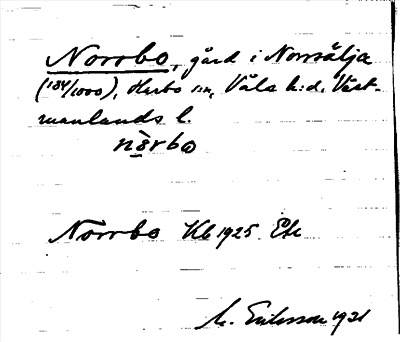 Norrbo, gård i Norrsälja
(184/1000), Harbo sn, Våla h:d, Väst-
manlands l.
nòrbω
Norrbo Kb 1925. Etc
M. Eriksson 1931